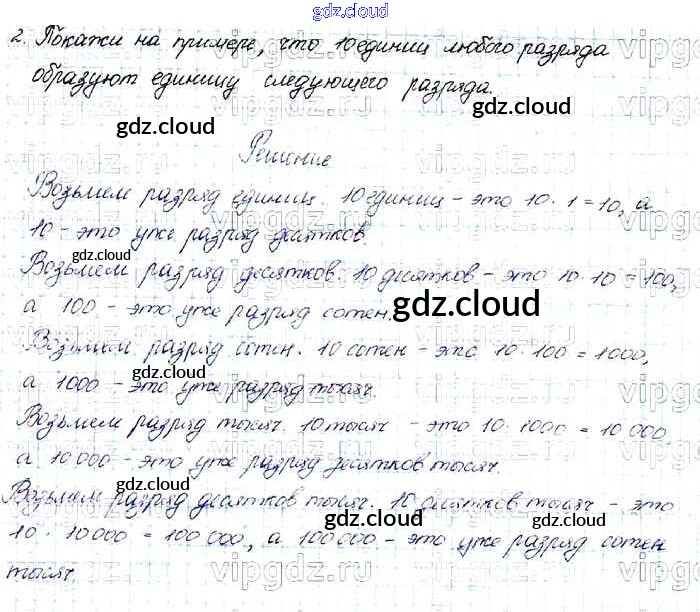 gdz.cloud
2. Покажи на примере, что 10 единиц любого разряда
образуют единицу следующего разряда.
gdz.cloud
gdz.cloud
Решение
Возьмем разряд единиц. 10 единиц - это 10 · 1 = 10, а
10 - это уже разряд десятков.
gdz.cloud
Возьмем разряд десятков. 10 десятков - это 10 · 10 = 100,
а 100 - это уже разряд сотен.
gdz.cloud
gdz.cloud
Возьмем разряд сотен. 10 сотен - это 10 · 100 = 1000,
а 1000 - это уже разряд тысяч.
gdz.cloud
Возьмем разряд тысяч. 10 тысяч - это 10 · 1000 = 10 000,
а 10 000 - это уже разряд десятков тысяч.
gdz.cloud
Возьмем разряд десятков тысяч. 10 десятков тысяч - это
gdz.cloud
gdz.cloud
10 · 10 000 = 100 000, а 100 000 - это уже разряд сотен
тысяч.
gdz.cloud